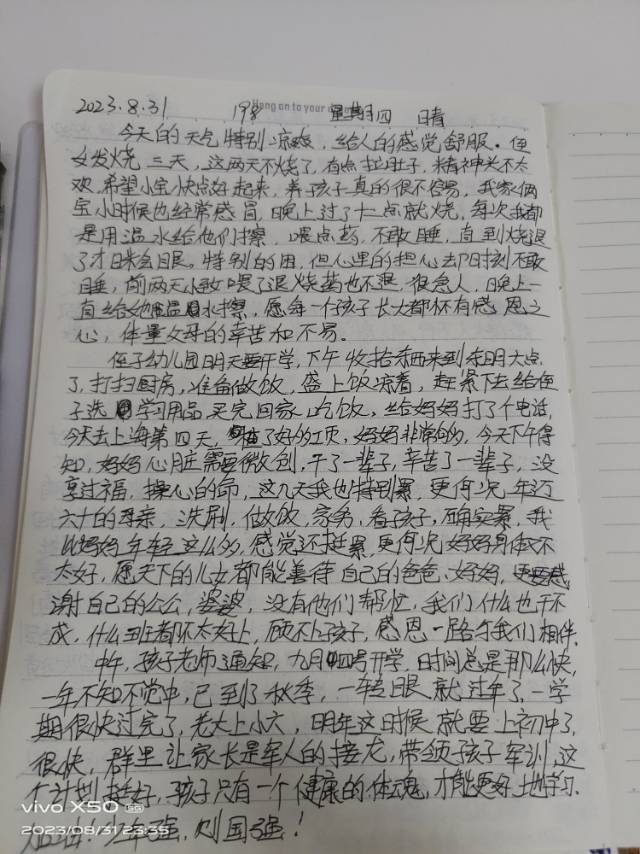 2023.8.31 198 Hang on to your 星期四 晴
今天的天气特别凉爽,给人的感觉舒服。但
女发烧三天,这两天不烧了,有点拉肚子,精神头不太
欢,希望小宝快点好起来,养孩子真的很不容易,我家俩
宝小时候也经常感冒,晚上过了十二点就烧,每次我都
是用温水给他们擦,喂点药,不敢睡,直到烧退
了才眯会眼。特别的困,但心里的担心却时刻不敢
睡,前两天小敏喂了退烧药也不退,很急人,晚上一
直给她用温水擦,愿每一个孩子长大都怀有感恩之
心,体量父母的辛苦和不易。
侄子幼儿园明天要开学,下午收拾东西来到东明六点
了,打扫厨房,准备做饭,盛上饭凉着,赶紧下去给侄
子选学习用品,买完回家吃饭,给妈妈打了个电话,
今天去上海第四天,检查了好的几项,妈妈非常的,今天下午得
知,妈妈心脏需要微创,干了一辈子,辛苦了一辈子,没
享过福,操心的命,这几天我也特别累,更何况年迈
六十的母亲,洗刷,做饭,家务,看孩子,确实累,我
比妈妈年轻这么多,感觉还挺累,更何况妈妈身体又不
太好,愿天下的儿女都能善待自己的爸爸、妈妈,更要感
谢自己的公公,婆婆,没有他们帮忙,我们什么也干不
成,什么班都怀太好上,顾不上孩子,感恩一路与我们相伴。
中午,孩子老师通知,九月四号开学,时间总是那么快,
一年不知不觉中,已到了秋季,一转眼就过年了,一学
期很快过完了,老大上小六,明年这时候就要上初中了,
很快,群里让家长是军人的接龙,带领孩子军训,这
个计划挺好,孩子只有一个健康的体魂,才能更好地学习.
加油!少年强,则国强!
vivo X50 5G
2023/08/31 23:35